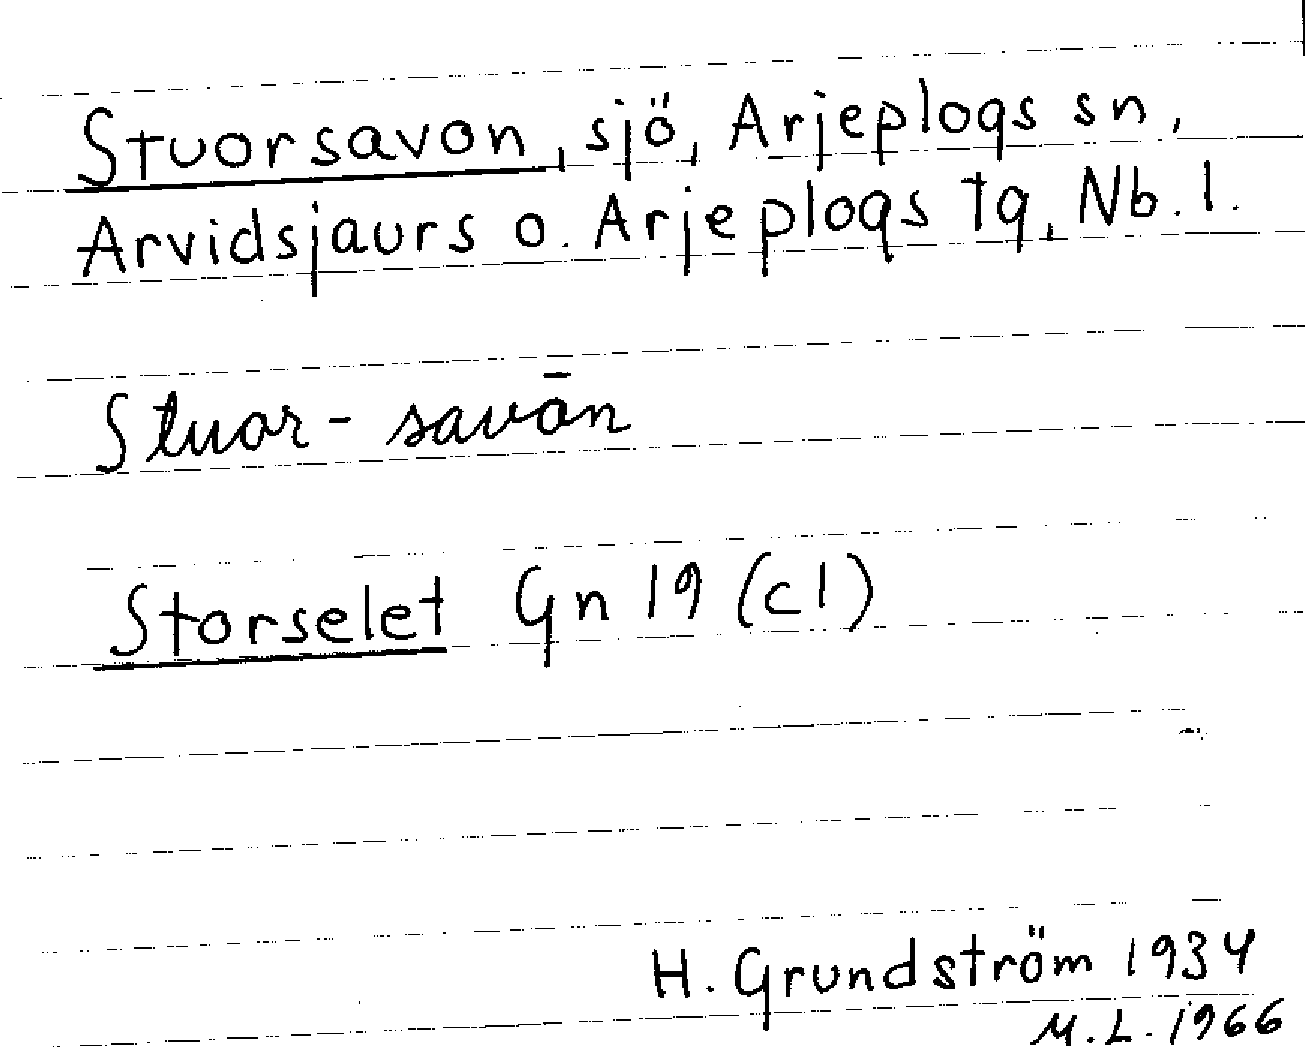 Stuorsavon, sjö, Arjeplogs sn,
Arvidsjaurs o. Arjeplogs tg, Nb. l.
Stuor-savōn
Storselet Gn 19 (c1)
H. Grundström 1934
M.L. 1966